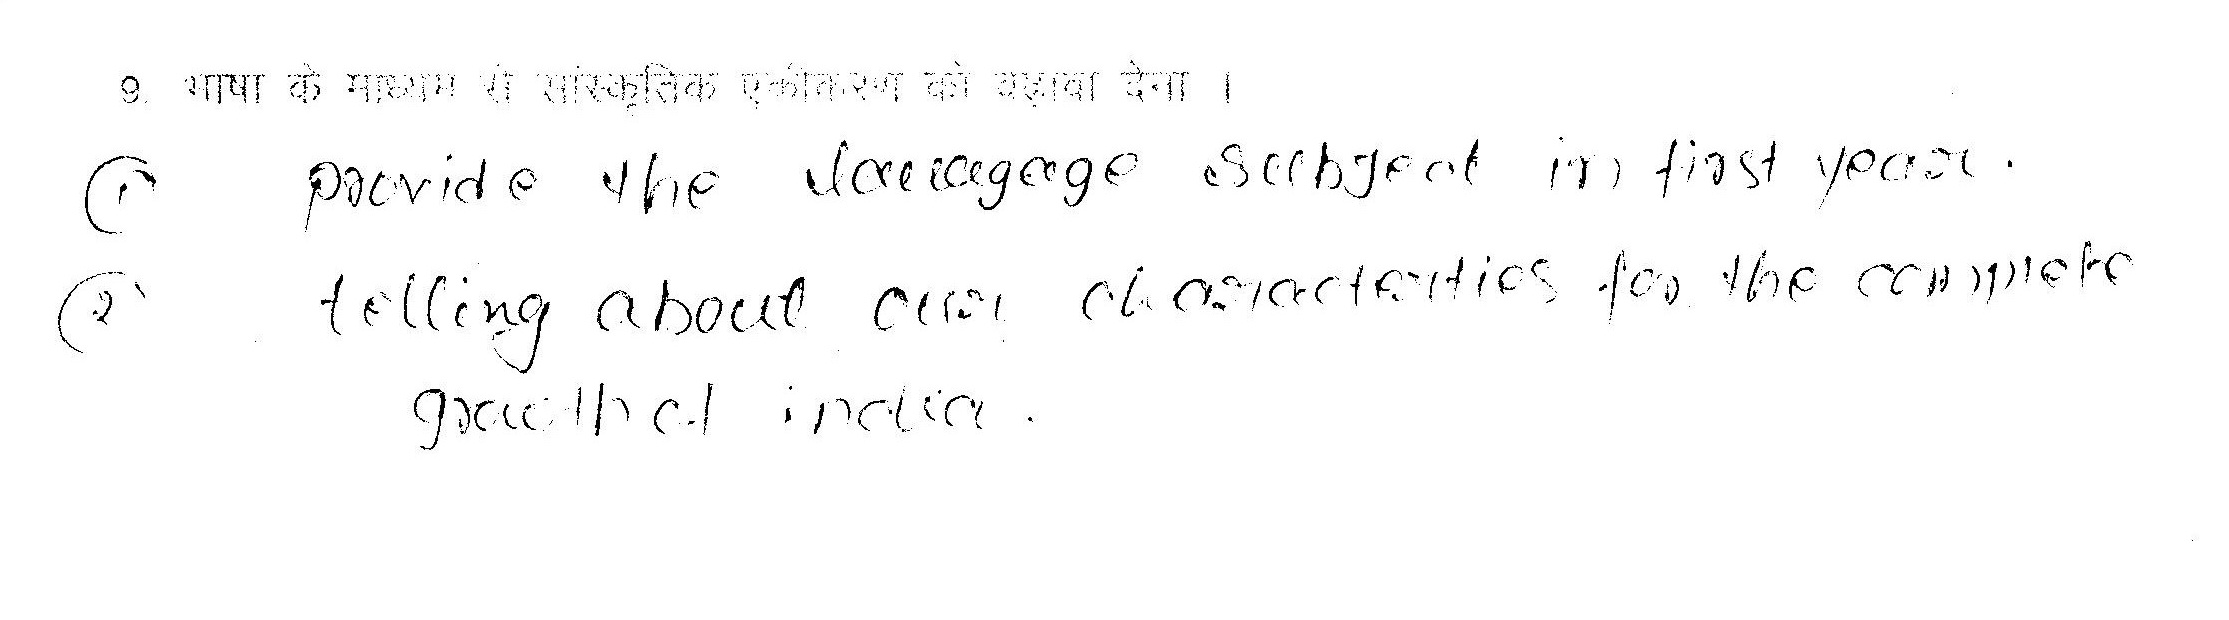 9. भाषा के माध्यम से सांस्कृतिक एकीकरण को बढ़ावा देना ।
(1) provide the language subject in first year.
(2) telling about our for the complete
growth of india.